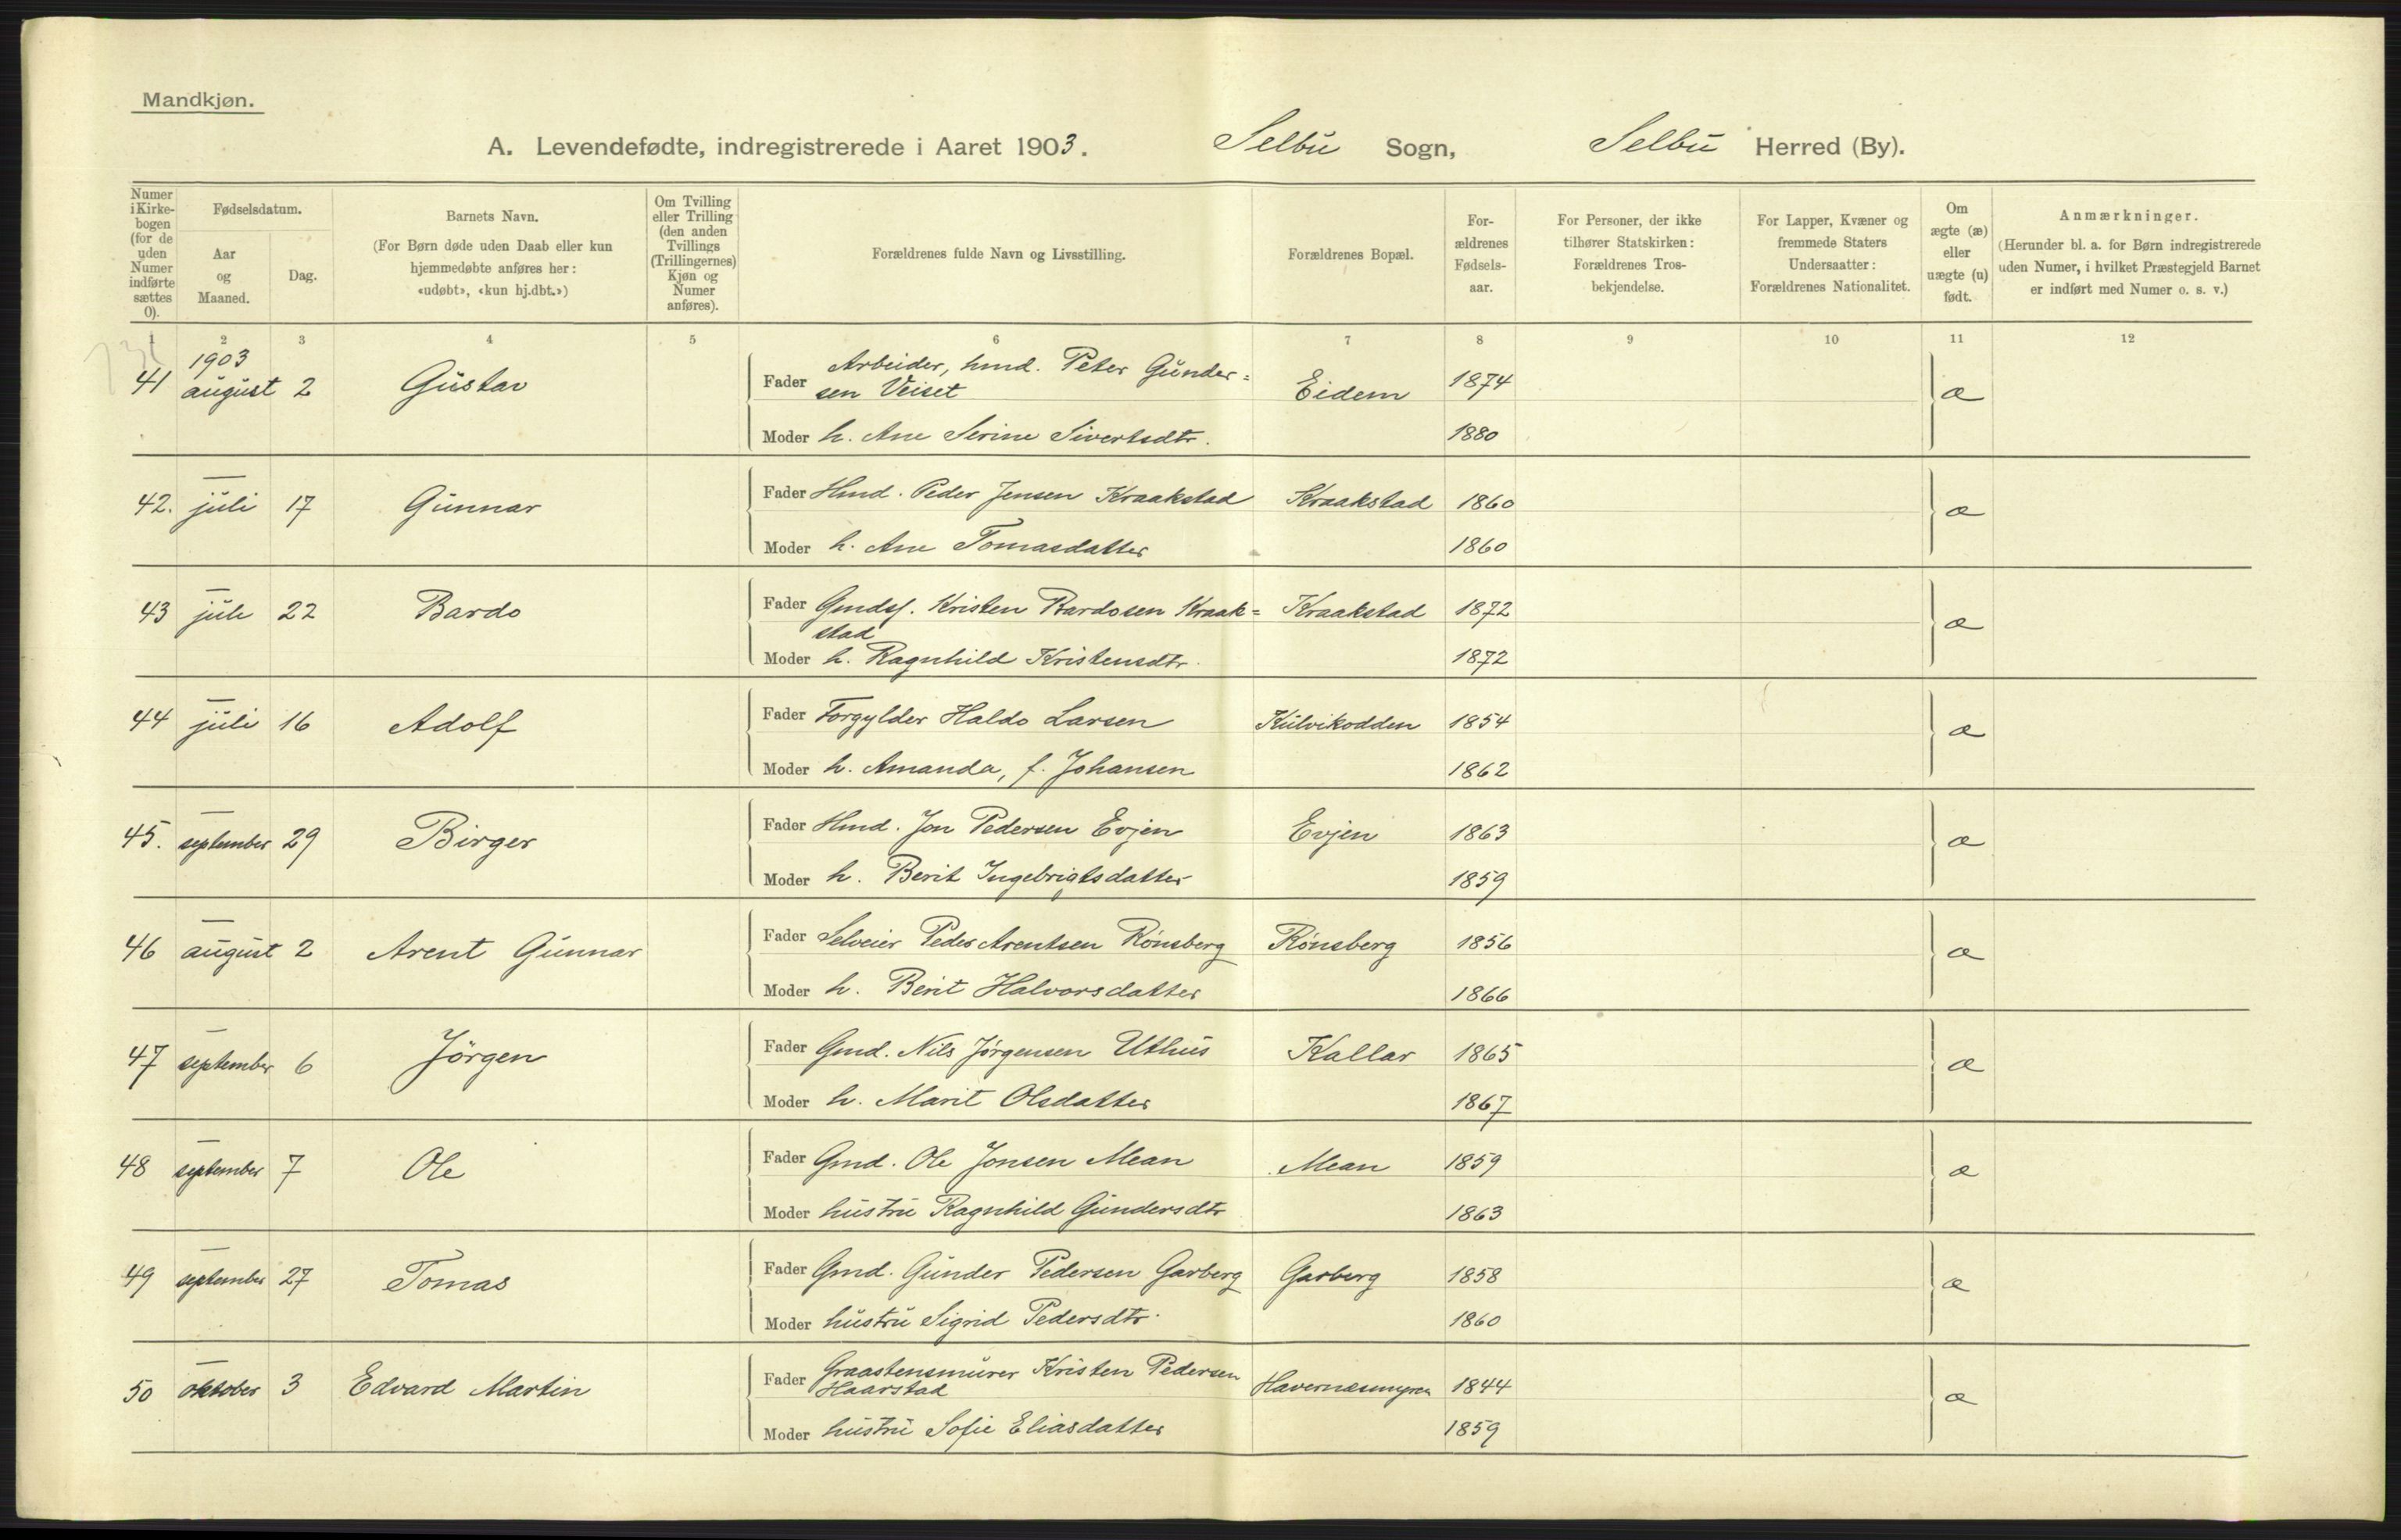 Mandkjøn.
A. Levendefødte, indregistrerede i Aaret 1903. Selbu Sogn, Selbu Herred (By).
Numer i Kirkebogen (for de uden Numer indførte sættes 0).
Fødselsdatum.
Aar og Maaned.
Dag.
Barnets Navn.
(For Børn døde uden Daab eller kun hjemmedøbte anføres her: «udøbt», «kun hj.dbt.»)
Om Tvilling eller Trilling (den anden Tvillings (Trillingernes) Kjøn og Numer anføres).
Forældrenes fulde Navn og Livsstilling.
Forældrenes Bopæl.
Forældrenes Fødselsaar.
For Personer, der ikke tilhører Statskirken: Forældrenes Trosbekjendelse.
For Lapper, Kvæner og fremmede Staters Undersaatter: Forældrenes Nationalitet.
Om ægte (æ) eller uægte (u) født.
Anmærkninger.
(Herunder bl. a. for Børn indregistrerede uden Numer, i hvilket Præstegjeld Barnet er indført med Numer o. s. v.)
1 2 3 4 5 6 7 8 9 10 11 12
1903
41 august 2 Gustav Fader Arbeider, hmd. Peter Gunder=
sen Veiset Eidem 1874 æ
Moder h. Ane Serine Sivertsdtr. 1880
42. — juli 17 Gunnar Fader Hmd. Peder Jensen Kraakstad Kraakstad 1860 æ
Moder h. Ane Tomasdatter 1860
43 — juli 22 Bardo Fader Gmdsf. Kristen Bardosen Kraak= Kraakstad 1872 æ
stad
Moder h. Ragnhild Kristensdtr. 1872
44 — juli 16 Adolf Fader Forgylder Haldo Larsen Kulvikodden 1854 æ
Moder h. Amanda, f. Johansen 1862
45. — september 29 Birger Fader Hmd. Jon Pedersen Evjen Evjen 1863 æ
Moder h. Berit Ingebrigtsdatter 1859
46 — august 2 Arent Gunnar Fader Selveier Peder Arentsen Rønsberg Rønsberg 1856 æ
Moder h. Berit Halvorsdatter 1866
47 — september 6 Jörgen Fader Gmd. Nils Jørgensen Uthus Kallar 1865 æ
Moder h. Marit Olsdatter 1867
48 — september 7 Ole Fader Gmd. Ole Jonsen Mean Mean 1859 æ
Moder hustru Ragnhild Gundersdtr 1863
49 — september 27 Tomas Fader Gmd. Gunder Pedersen Garberg Garberg 1858 æ
Moder hustru Sigrid Pedersdtr. 1860
50 — oktober 3 Edvard Martin Fader Graastensmurer Kristen Pedersen
Haarstad 1844 æ
Moder hustru Sofie Eliasdatter 1859